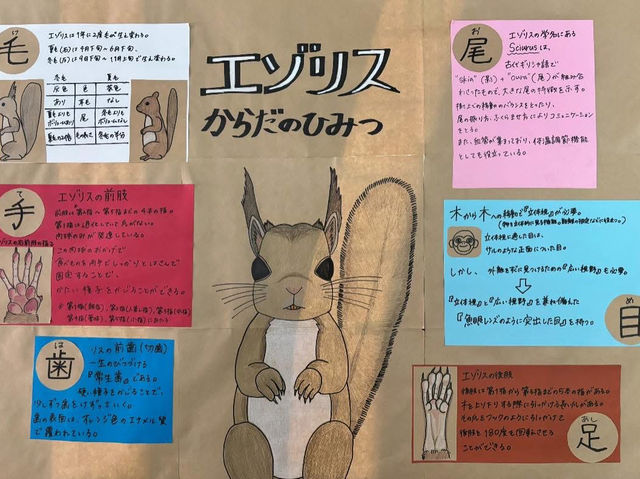 エゾリス
からだのひみつ
け
毛
エゾリスは1年に2度毛が生え変わる。
夏毛(右)は4月下旬〜6月下旬、
冬毛(左)は9月下旬〜11月上旬で生え変わる。
冬毛 夏毛
灰色 色 茶色
あり 耳毛 なし
夏毛より
ボリュームあり 尾 冬毛より
ボリュームなし
夏毛の2倍 毛の長さ 冬毛の半分
て
手
エゾリスの前肢
前肢は第2指〜第5指までの4本の指。
第1指は退化していて爪がない。
肉球の形が発達している。
この肉球のおかげで
食べものを両手でしっかりとはさんで
固定することで、
かたい種子をかじることができる。
は
歯
リスの前歯(切歯)
一生のびつづける
『常生歯』である。
硬い種子をかじることで、
少しずつ歯をけずっていく。
歯の表面は、オレンジ色のエナメル質
で覆われている。
お
尾
エゾリスの学名にある
Sciurusは、
古代ギリシャ語で
(影)+"oura"(尾)が組み合
わさったもので、大きな尾の特徴を示す。
樹上での移動のバランスをとったり、
尾の振り方、ふくらませ方によりコミュニケーション
をとる。
また、血管が集まっており、体温調節機能
としても役立っている。
め
目
木から木への移動で『立体視』が必要。
立体視に適した目は、
サルのような正面についた目。
しかし、外敵を素早く見つけるための『広い視野』も必要。
『立体視』と『広い視野』を兼ね備えた
『魚眼レンズのように突出した目』を持つ。
あし
足
エゾリスの後肢
後肢には第1指から第5指までの5本の指がある。
木を上り下りする際に引っかける長い爪がある。
その爪をフックのように引っかけて
後肢を180度も回転させる
ことができる。